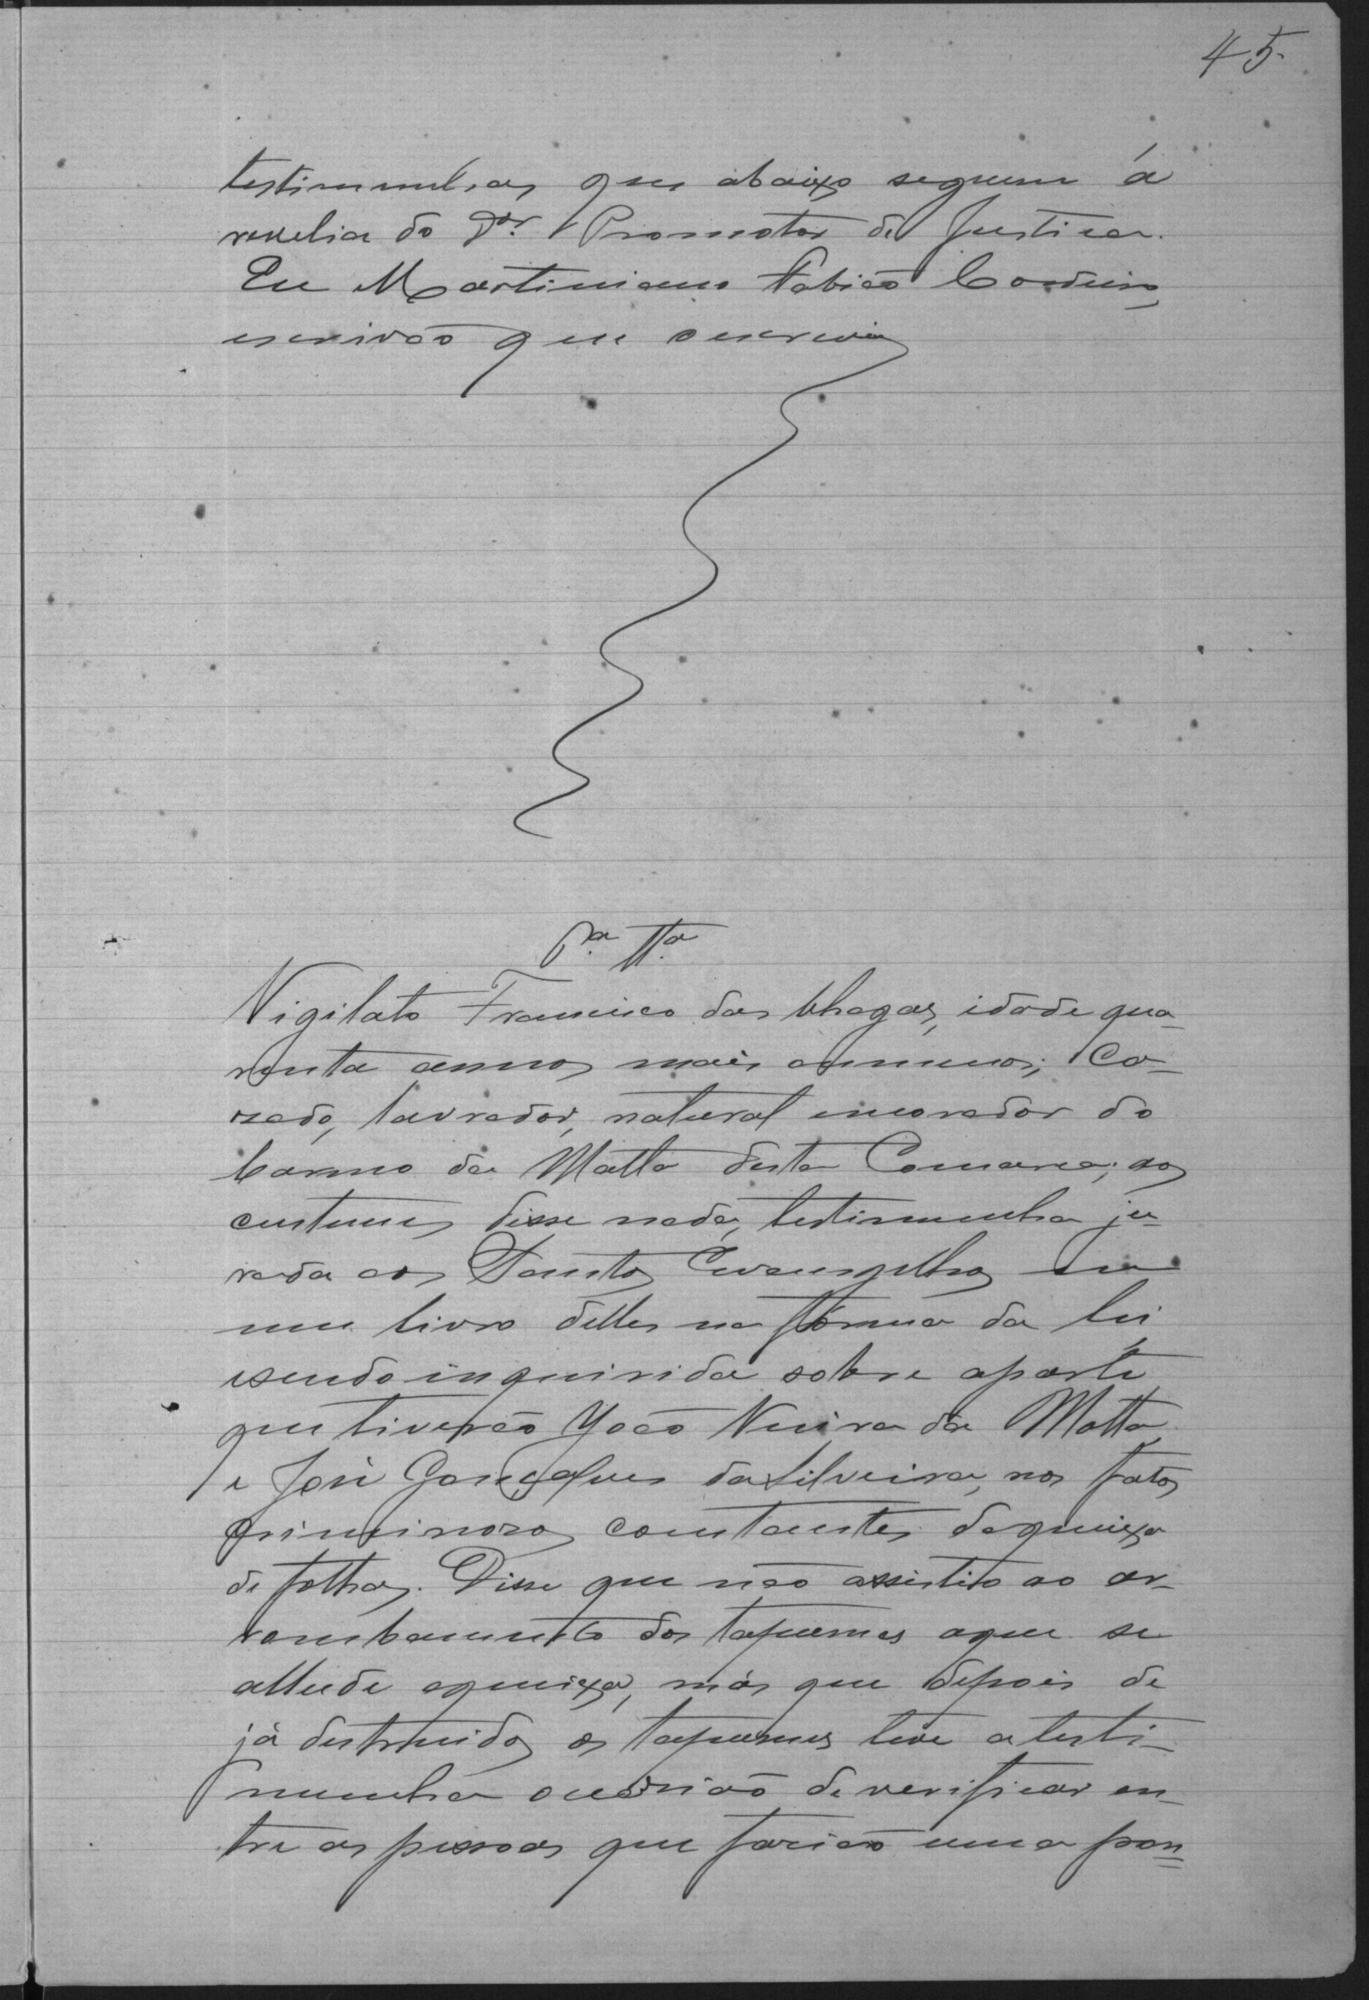 45.
testimunhas que abaixo seguem á
revelia do Dor. Promotor de Justica.
Eu Martiniano Fabião Cordeiro,
escrivão que escrevi
Pa. Tta.
Vigilato Francisco das Chagas, idade qua-
renta annos mais oumenos; Ca-
zado, lavrador, natural emorador do
barro da Matta desta Comarca; aos
custumes disse nada, testimunha ju-
rada aos Santos Evangelhos em
um livro delles na fórma da lei
esendo inquirida sobre aparte
que tiverão João Vieira da Motta
e José Gonçalves da Silveira, nos fatos
criminozos constantes daqueixa
de folhas. Disse que não assistio ao ar-
rombamento dos tapumes aque se
allude aqueixa, más que depois de
já destruidos os tapumes teve a testi-
munha occasião de verificar en-
tre as pessoas que fazião uma pon=